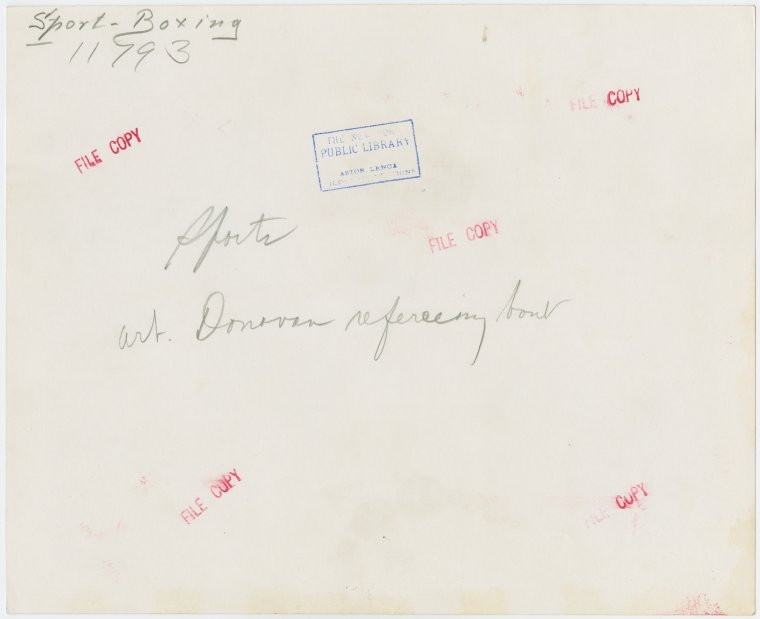 Sport - Boxing
11793
FILE COPY
FILE COPY
THE NEW YORK
PUBLIC LIBRARY
ASTOR, LENOX
FILE COPY
Sports
art. Donovan refereeing bout
FILE COPY
FILE COPY